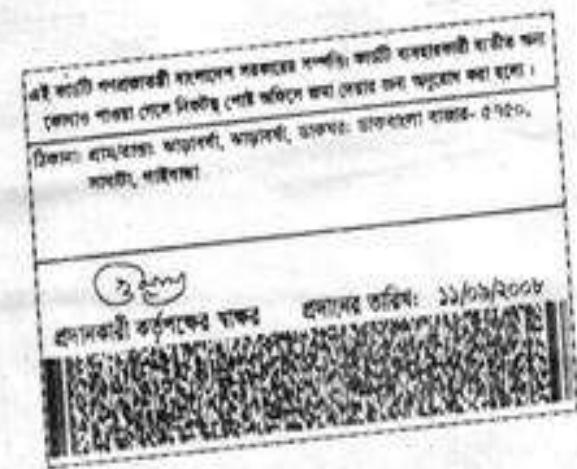 এই কার্ডটি গণপ্রজাতন্ত্রী বাংলাদেশ সরকারের সম্পত্তি। কার্ডটি ব্যবহারকারী ব্যতীত অন্য
কোথাও পাওয়া গেলে নিকটস্থ পোষ্ট অফিসে জমা দেয়ার জন্য অনুরোধ করা হলো।
ঠিকানা: গ্রাম/রাস্তা: ঝাড়াবর্ষা, ঝাড়াবর্ষা, ডাকঘর: ডাকবাংলা বাজার- ৫৭৫০,
সাঘাটা, গাইবান্ধা
প্রদানকারী কর্তৃপক্ষের স্বাক্ষর প্রদানের তারিখ: ১১/০৯/২০০৮